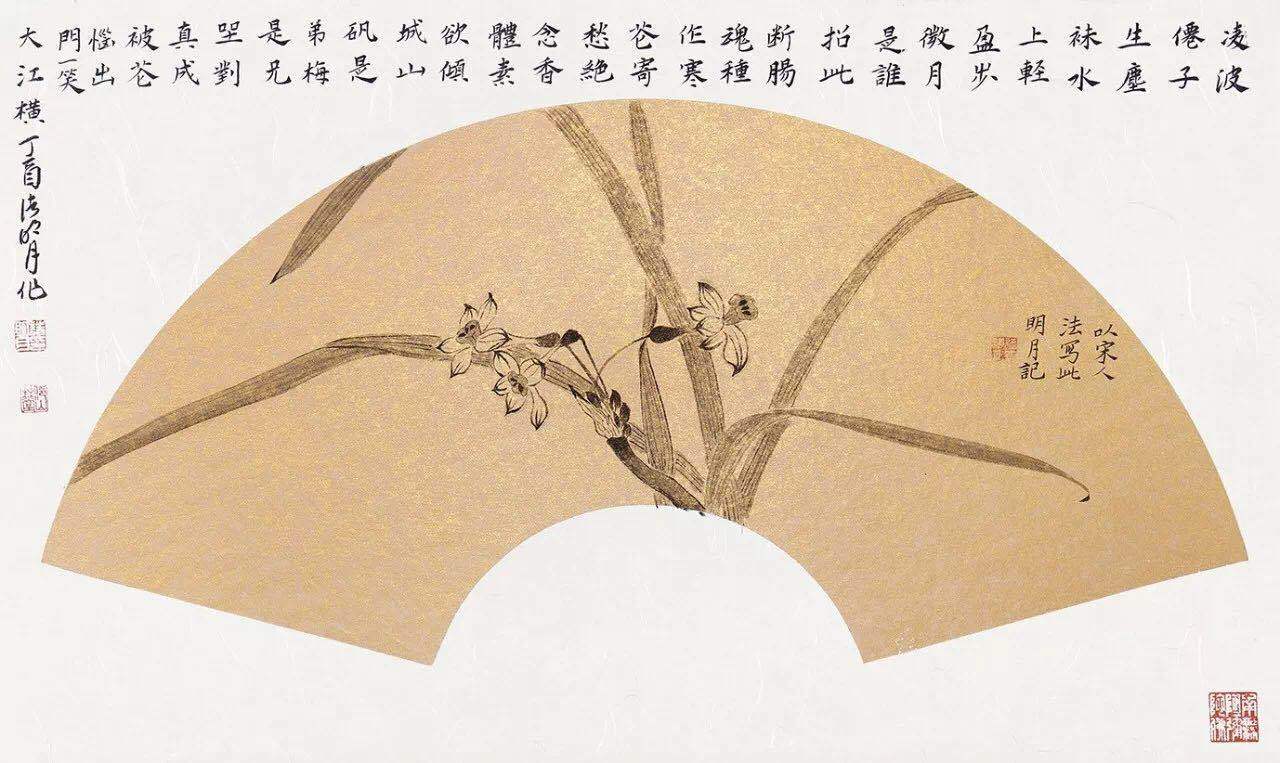 凌波
僊子
生塵
袜水
上輕
盈步
微月
是誰
招此
断腸
魂種
作寒
花寄
愁絶
含香
體素
欲傾
城山
矾是
弟梅
是兄
坐對
真成
被花
惱出
門一笑
大江横丁酉明月作
以宋人
法写此
明月記